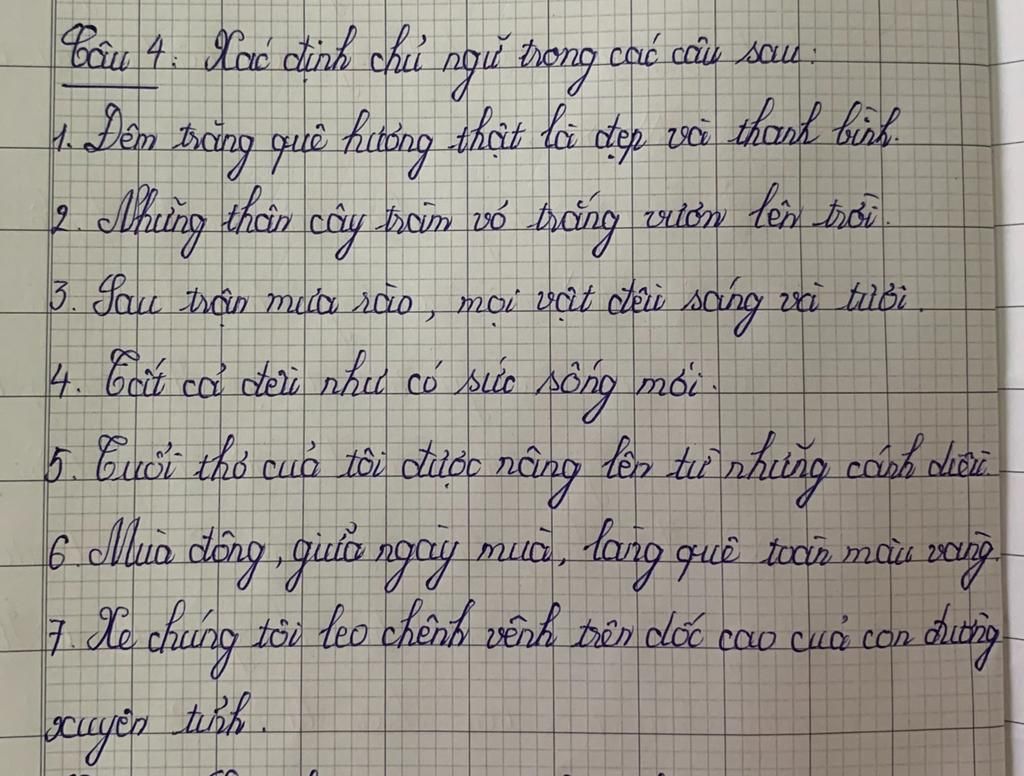 Câu 4: Xác định chủ ngữ trong các câu sau:
1. Đêm trăng quê hương thật là đẹp và thanh bình.
2. Những thân cây tràm vỏ trắng vươn lên trời.
3. Sau trận mưa rào, mọi vật đều sáng và tươi.
4. Tất cả đều như có sức sống mới.
5. Tuổi thơ của tôi được nâng lên từ những cánh diều
6. Mùa đông, giữa ngày mùa, làng quê toàn màu vàng.
7. Xe chúng tôi leo chênh vênh trên dốc cao của con đường
xuyên tỉnh.